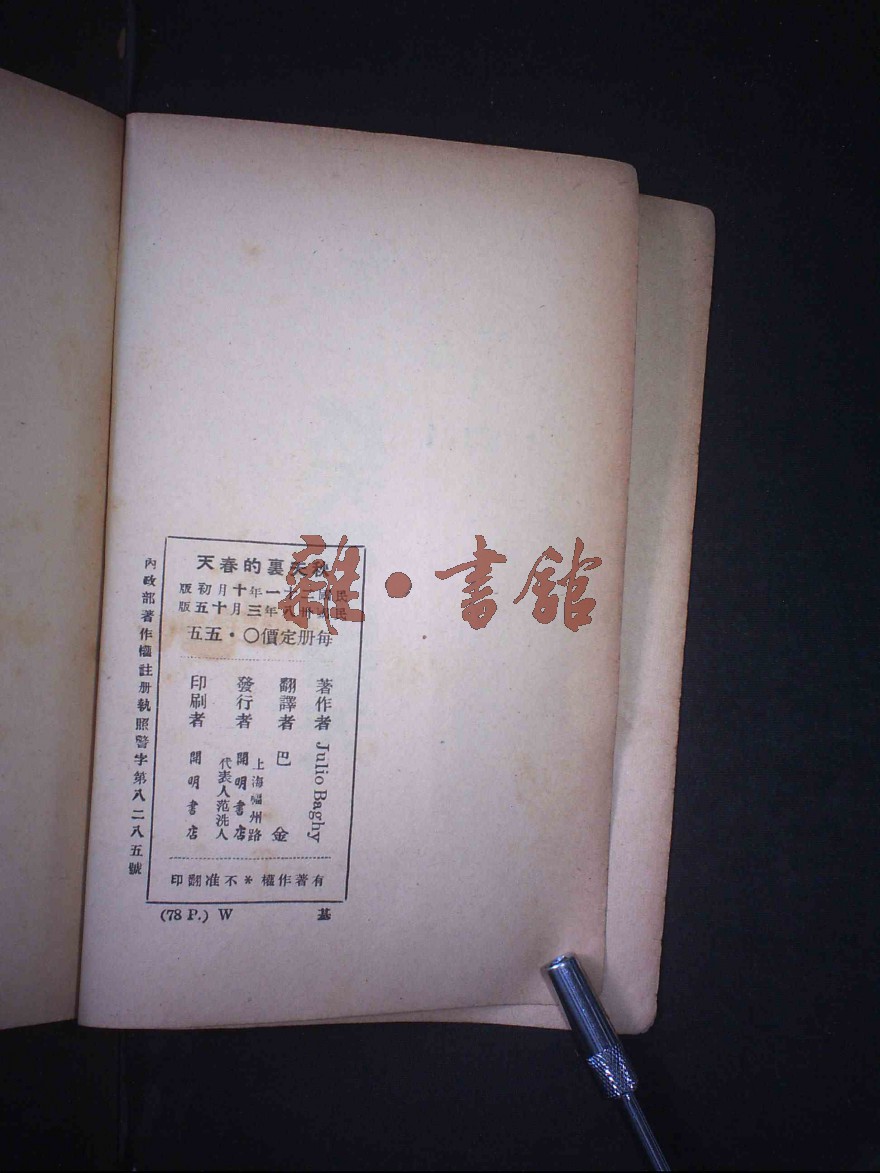 秋天裏的春天
民國二十一年十月初版
民國卅八年三月十五版
每册定價〇・五五
著作者 Julio Baghy
翻譯者 巴金
發行者 上海福州路
開明書店
代表人范洗人
印刷者 開明書店
有著作權*不准翻印
(78 P.) W 基
內政部著作權註册執照警字第八二八五號
雜・書館